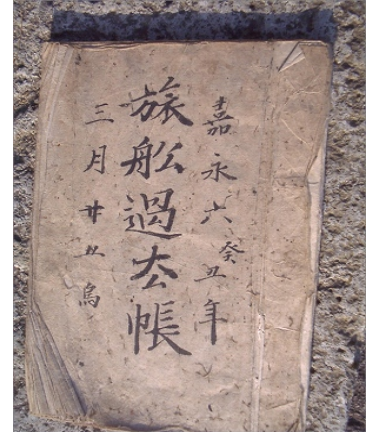 嘉永六癸丑年
旅舩過厺帳
三月廿五烏